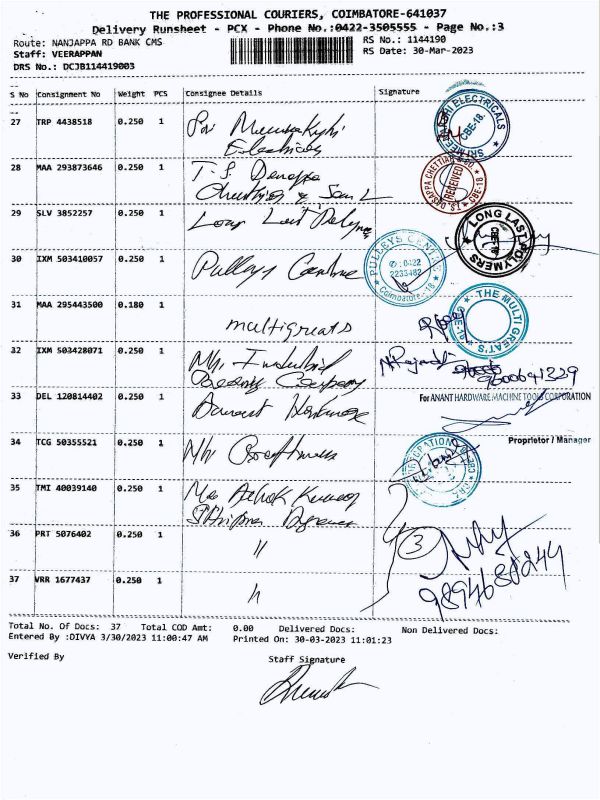 THE PROFESSIONAL COURIERS, COIMBATORE-641037
Delivery Runsheet - PCX - Phone No.:0422-3505555 - Page No.:3
Route: NANJAPPA RD BANK CMS
RS No.: 1144190
Staff: VEERAPPAN
RS Date: 30-Mar-2023
DRS No.: DCJB114419003
S No Consignment No Weight PCS Consignee Details Signature
27 TRP 4438518 0.250 1 Sri
Electricals
ELECTRICALS
CBE-18.
28 MAA 293873646 0.250 1 T.S.
& Sons
RECEIVED
CBE-18
29 SLV 3852257 0.250 1 Long Last Polymers
LONG LAST POLYMERS
30 IXM 503410057 0.250 1 Pulleys Centre
PULLEYS CENTRE
: 0422
2233482
Coimbatore - 18
31 MAA 295443500 0.180 1 multigreats
THE MULTI GREAT'S
32 IXM 503428071 0.250 1 Industrial
Company
9600641329
33 DEL 120814402 0.250 1
For ANANT HARDWARE MACHINE TOOLS CORPORATION
Proprietor / Manager
34 TCG 50355521 0.250 1
35 TMI 40039140 0.250 1 Ashok Kumar
36 PRT 5076402 0.250 1 "
3
37 VRR 1677437 0.250 1 "
Total No. Of Docs: 37 Total COD Amt: 0.00 Delivered Docs: Non Delivered Docs:
Entered By :DIVYA 3/30/2023 11:00:47 AM Printed On: 30-03-2023 11:01:23
Verified By
Staff Signature